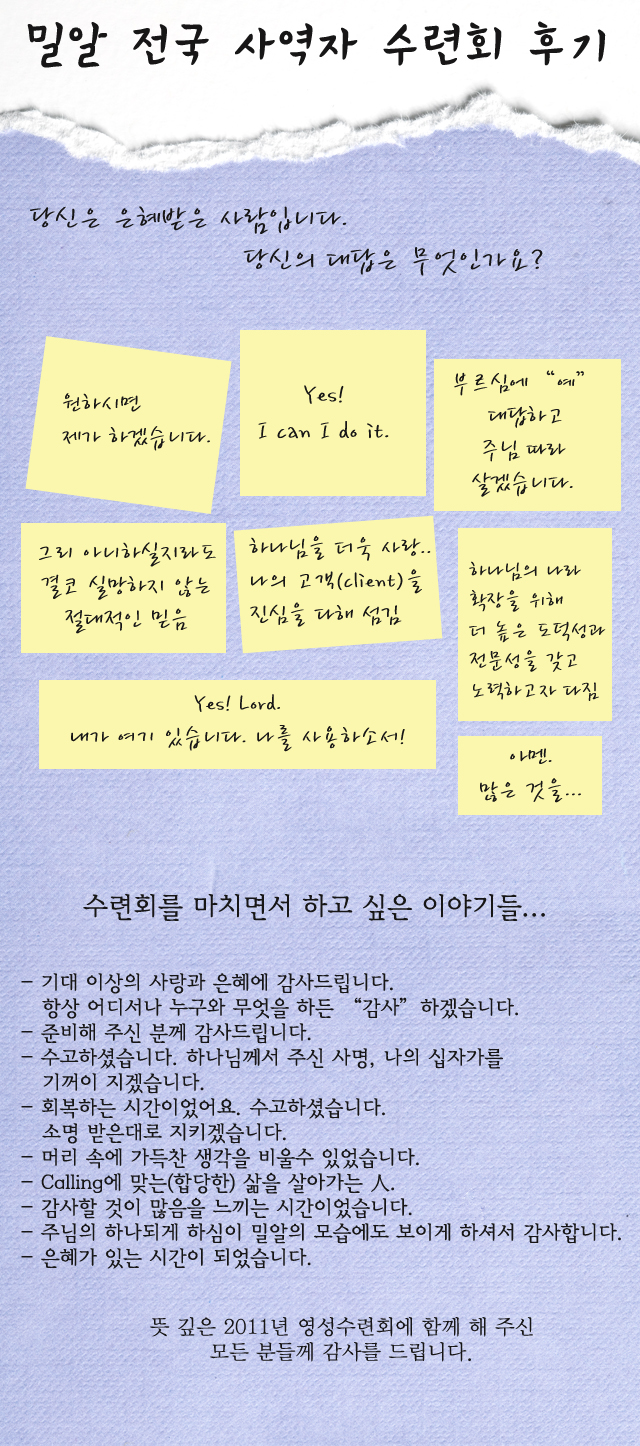 밀알 전국 사역자 수련회 후기
당신은 은혜받은 사람입니다.
당신의 대답은 무엇인가요?
원하시면
제가 하겠습니다.
Yes!
I can I do it.
부르심에 “예”
대답하고
주님 따라
살겠습니다.
그리 아니하실지라도
결코 실망하지 않는
절대적인 믿음
하나님을 더욱 사랑..
나의 고객(client)을
진심을 다해 섬김
하나님의 나라
확장을 위해
더 높은 도덕성과
전문성을 갖고
노력하고자 다짐
Yes! Lord.
내가 여기 있습니다. 나를 사용하소서!
아멘.
많은 것을...
수련회를 마치면서 하고 싶은 이야기들...
- 기대 이상의 사랑과 은혜에 감사드립니다.
항상 어디서나 누구와 무엇을 하든 “감사” 하겠습니다.
- 준비해 주신 분께 감사드립니다.
- 수고하셨습니다. 하나님께서 주신 사명, 나의 십자가를
기꺼이 지겠습니다.
- 회복하는 시간이었어요. 수고하셨습니다.
소명 받은대로 지키겠습니다.
- 머리 속에 가득찬 생각을 비울수 있었습니다.
- Calling에 맞는(합당한) 삶을 살아가는 人.
- 감사할 것이 많음을 느끼는 시간이었습니다.
- 주님의 하나되게 하심이 밀알의 모습에도 보이게 하셔서 감사합니다.
- 은혜가 있는 시간이 되었습니다.
뜻 깊은 2011년 영성수련회에 함께 해 주신
모든 분들께 감사를 드립니다.